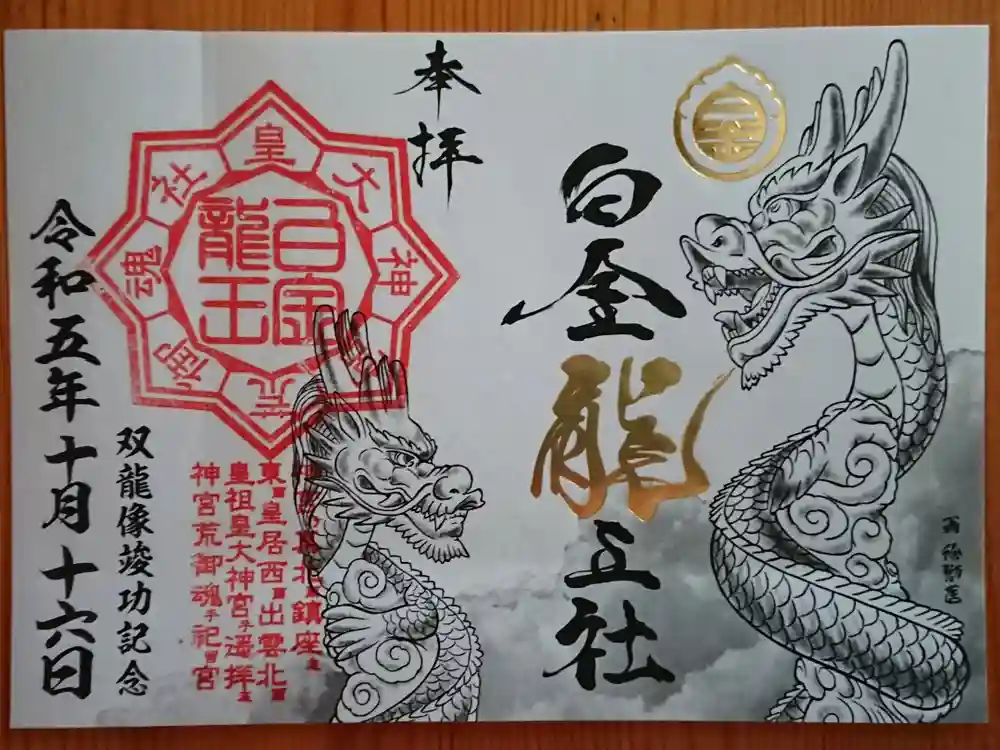 白金龍王社
奉拝
皇大神宮荒御魂社
白金
龍王
東ニ皇居西ニ出雲北ニ
皇祖皇大神宮ヲ遥拝シ
神宮荒御魂ヲ祀ル宮
双龍像竣功記念
令和五年十月十六日